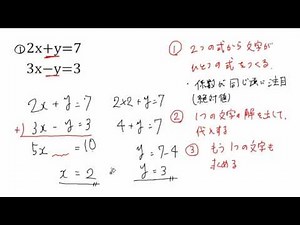 ①2x+y=7
3x−y=3
2x + y = 7
+) 3x − y = 3
5x = 10
x = 2
2×2 + y = 7
4 + y = 7
y = 7−4
y = 3
① 2つの式から文字が
ひとつの式をつくる
・係数が同じ項に注目
(絶対値)
② 1つの文字の解を出して、
代入する
③ もう1つの文字も
求める